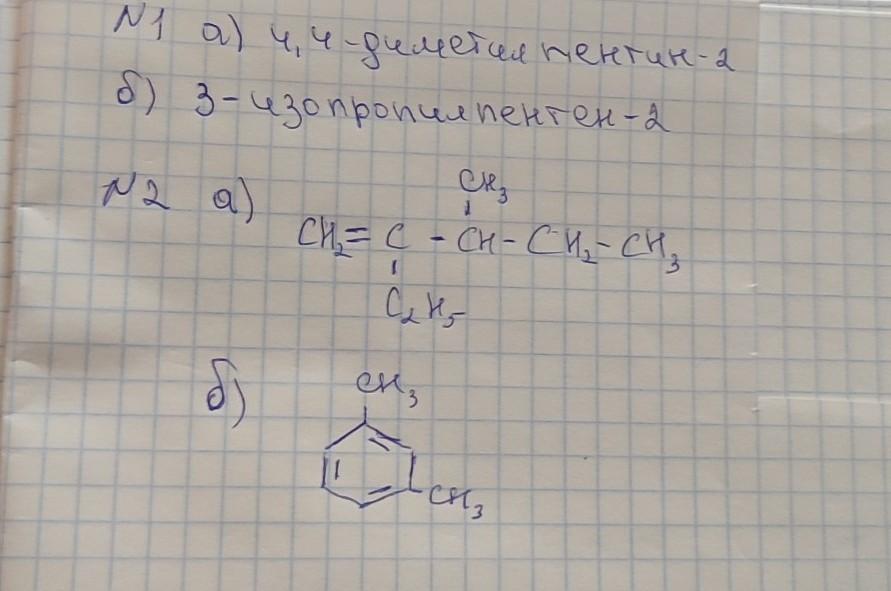 N1 а) 4,4-диметилпентин-2
б) 3-изопропилпентен-2
N2 а)
CH3
CH2=C-CH-CH2-CH3
C2H5
б)
CH3
CH3